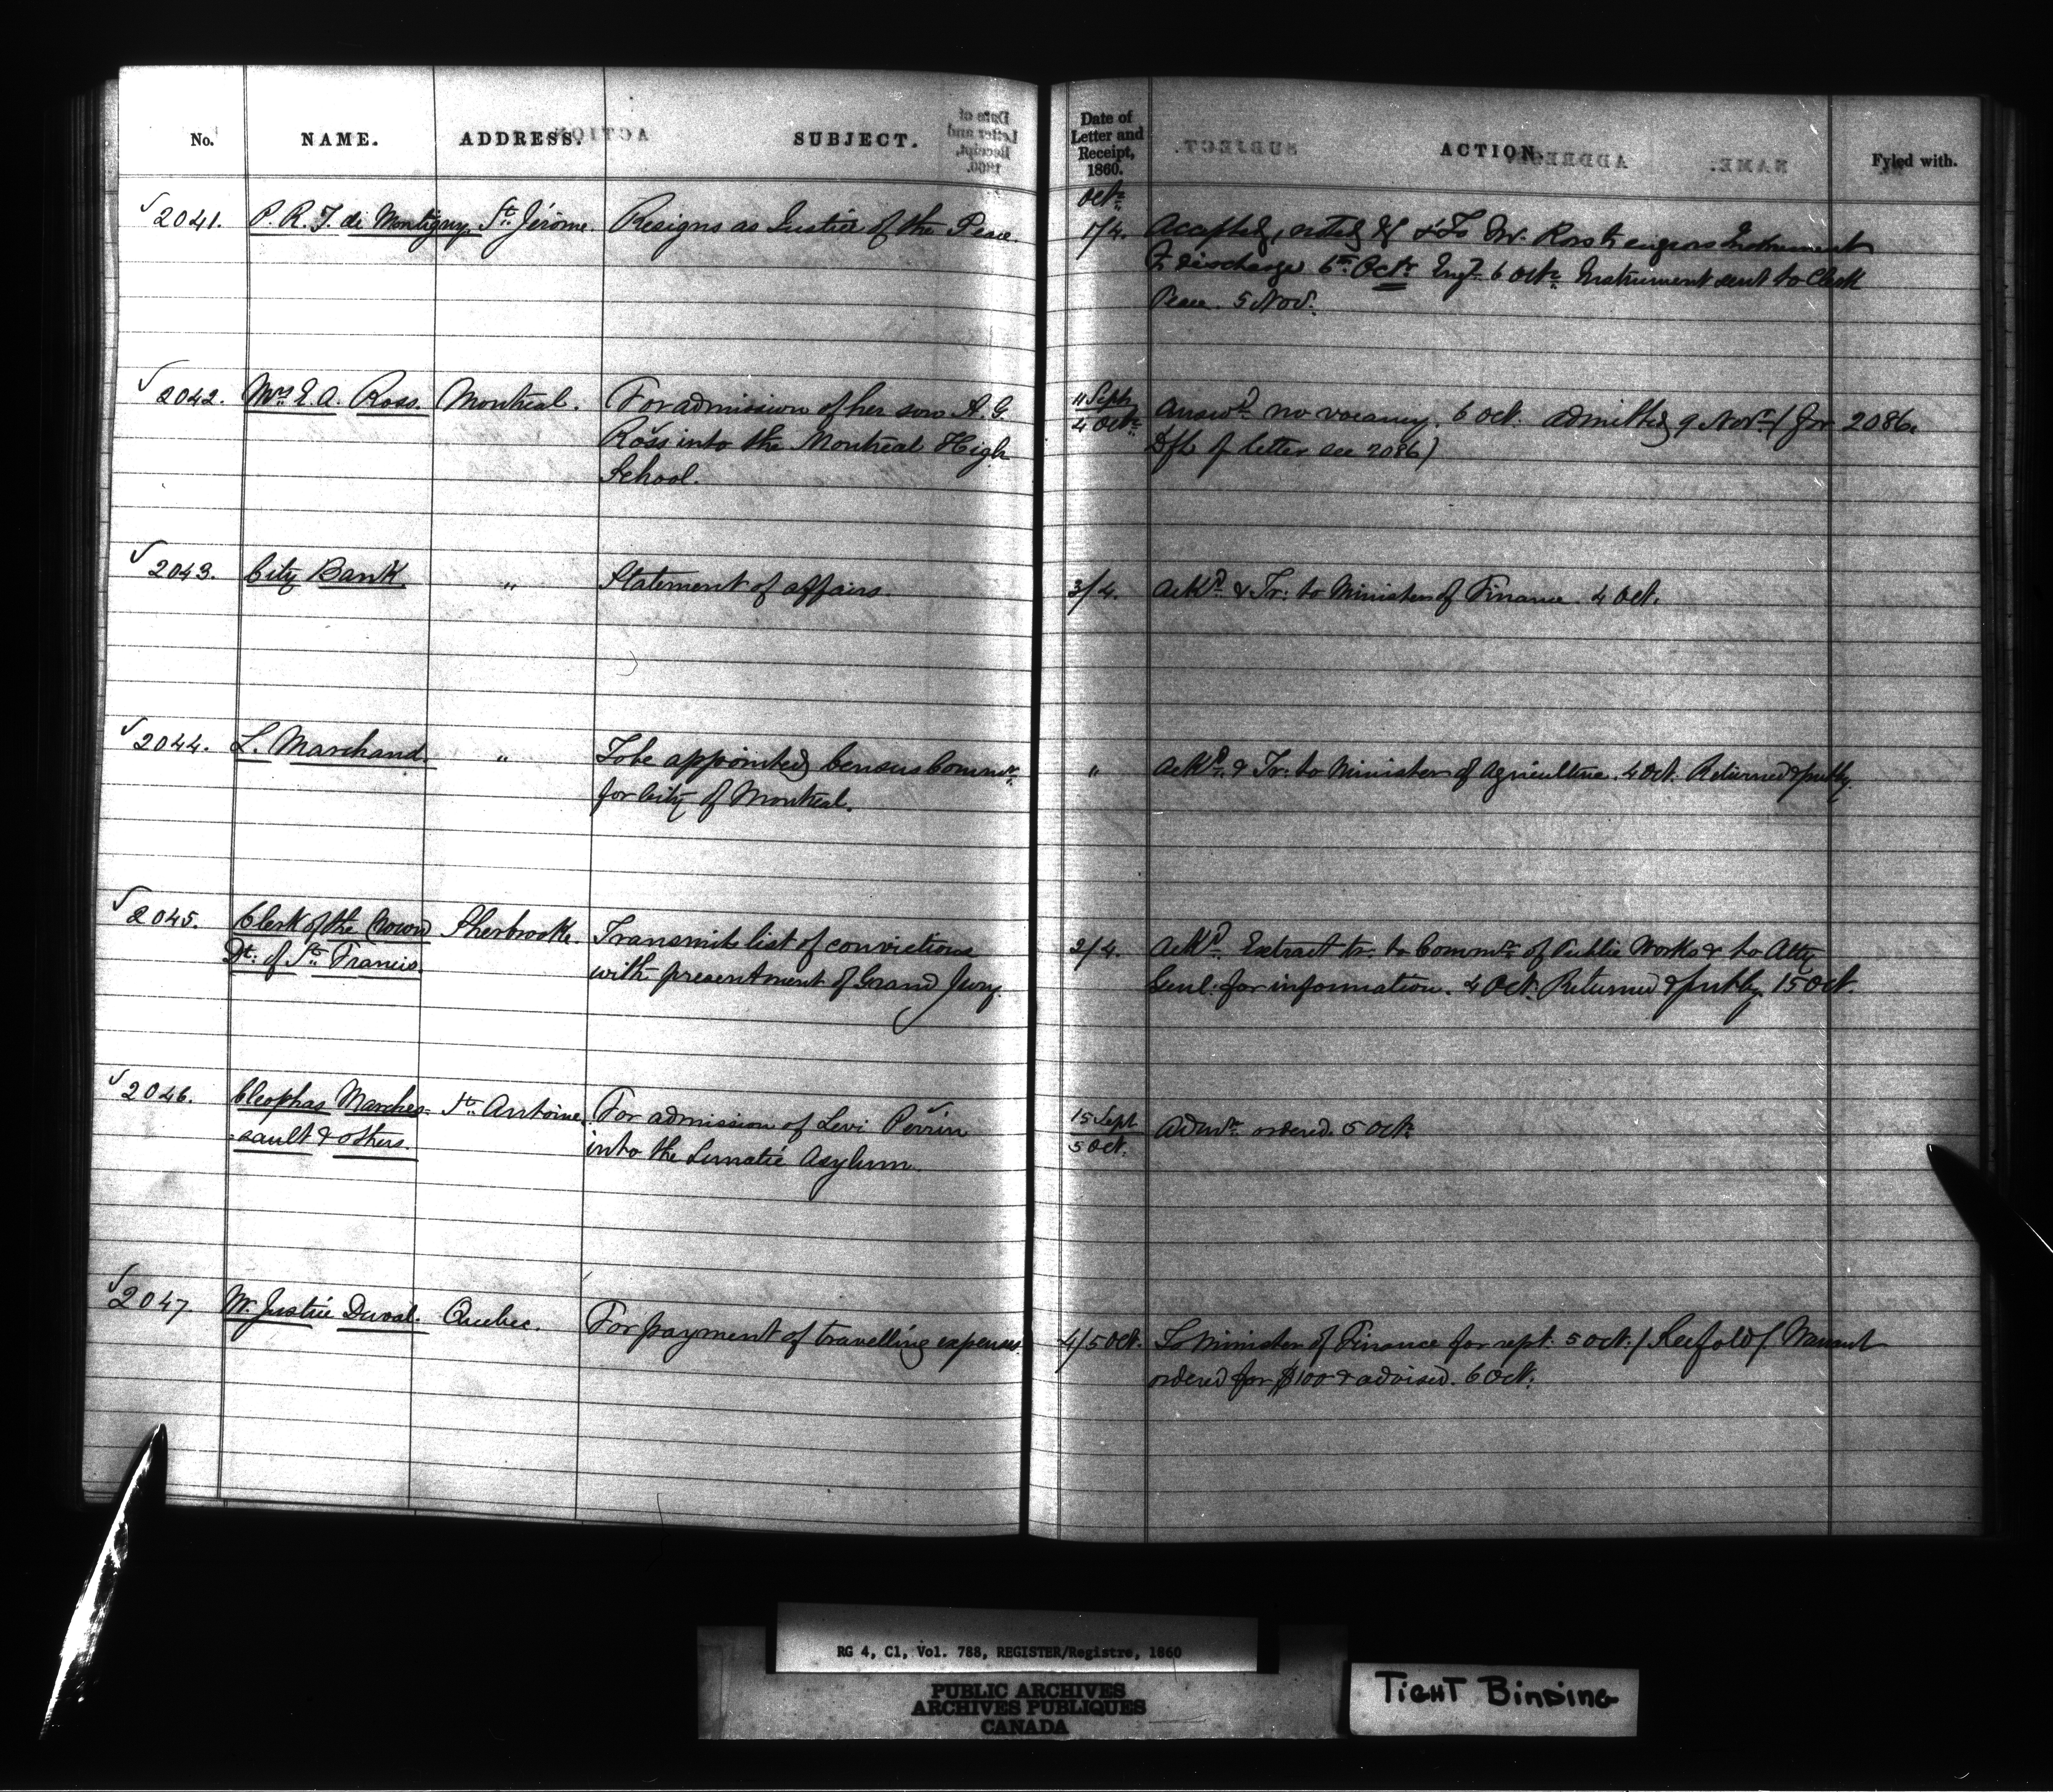 No. NAME. ADDRESS. SUBJECT. Date of Letter and Receipt, 1860. ACTION. Fyled with.
Octr.
2041. P. R. T. de Montigny. St. Jérôme. Resigns as Justice of the Peace. 1/4. Accepted, noted & To Mr. Ross to engross Instrument
of discharge 6th Octr. Engd. 6 Octr. Instrument sent to Clerk
Peace. 5 Nov.
2042. Mrs. E. A. Ross. Montreal. For admission of her son A. G. 11 Septr. Answd. no vacancy. 6 Oct. Admitted 9 Novr. (for 2086.
Ross into the Montreal High 4 Octr. Dft. of letter see 2086)
School.
2043. City Bank. " Statement of affairs. 3/4. Ackd. & Tr: to Minister of Finance. 4 Oct.
2044. L. Marchand. " To be appointed Census Commr. " Ackd. & Tr: to Minister of Agriculture. 4 Oct. Returned & put by.
for City of Montreal.
2045. Clerk of the Crown Sherbrooke. Transmits list of convictions 2/4. Ackd. Extract tr. to Commr. of Public Works & to Atty
Dt. of St. Francis. with presentment of Grand Jury. Genl. for information. 4 Oct. Returned & put by 15 Oct.
2046. Cleophas Marches- St. Antoine. For admission of Levi Perrin 15 Sept Admn. ordered. 5 Octr.
sault & others. into the Lunatic Asylum. 5 Oct.
2047 Mr. Justice Duval. Quebec. For payment of travelling expenses. 4/5 Oct. To Minister of Finance for rept. 5 Oct. Warrant
ordered for $100 & advised. 6 Oct.
RG 4, C1, Vol. 788, REGISTER/Registre, 1860
PUBLIC ARCHIVES
ARCHIVES PUBLIQUES
CANADA
TIGHT BINDING